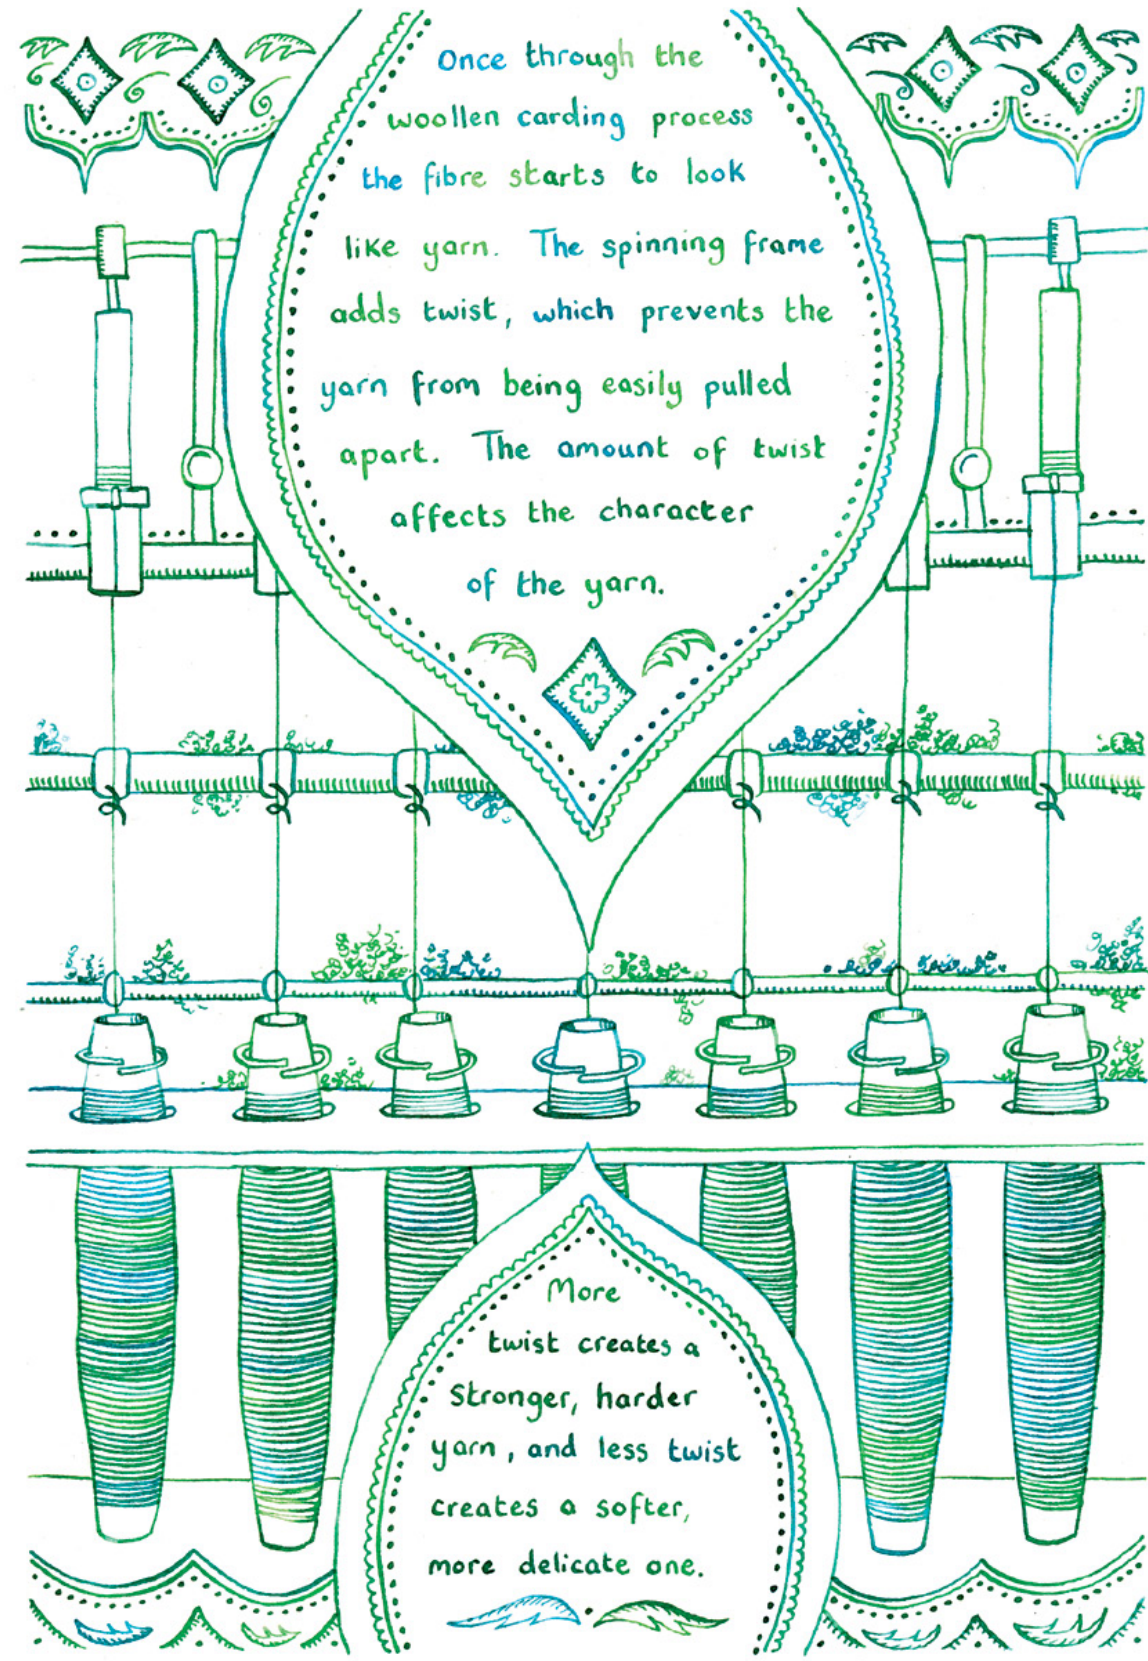 Once through the
woollen carding process
the fibre starts to look
like yarn. The spinning frame
adds twist, which prevents the
yarn from being easily pulled
apart. The amount of twist
affects the character
of the yarn.
More
twist creates a
stronger, harder
yarn, and less twist
creates a softer,
more delicate one.